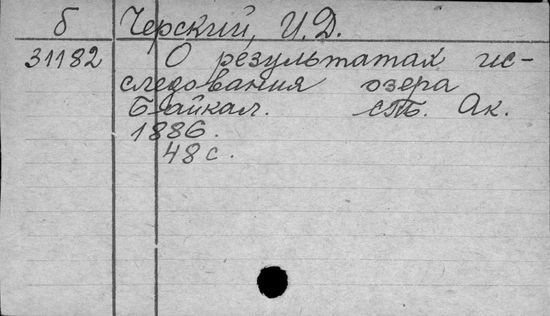 б Черский, И.Д.
31182 О результатах ис-
следования озера
Байкал. СПБ. Ак.
1886.
48 с.